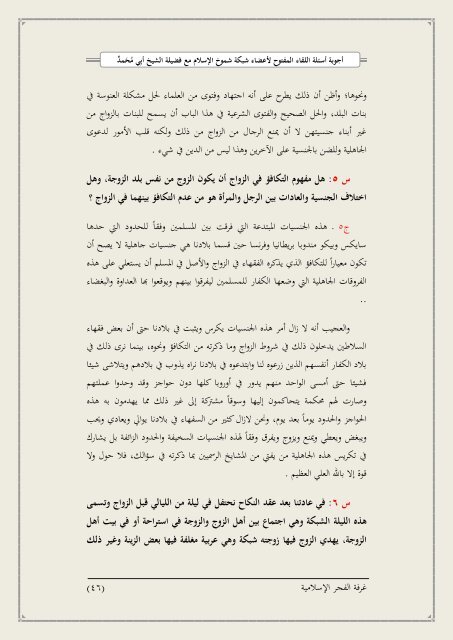 أجوبة أسئلة اللقاء المفتوح لأعضاء شبكة شموخ الإسلام مع فضيلة الشيخ أبي مُحَمدٌ
ونحوها؛ وأظن أن ذلك يطرح على أنه اجتهاد وفتوى من العلماء لحل مشكلة العنوسة في
بنات البلد، والحل الصحيح والفتوى الشرعية في هذا الباب أن يسمح للبنات بالزواج من
غير أبناء جنسيتهن لا أن يمنع الرجال من الزواج من ذلك ولكنه قلب الأمور لدعوى
الجاهلية وللضن بالجنسية على الآخرين وهذا ليس من الدين في شيء .
س ٥: هل مفهوم التكافؤ في الزواج أن يكون الزوج من نفس بلد الزوجة، وهل
اختلاف الجنسية والعادات بين الرجل والمرأة هو من عدم التكافؤ بينهما في الزواج ؟
ج٥ . هذه الجنسيات المبتدعة التي فرقت بين المسلمين وفقاً للحدود التي حدها
سايكس وبيكو مندوبا بريطانيا وفرنسا حين قسما بلادنا هي جنسيات جاهلية لا يصح أن
تكون معياراً للتكافؤ الذي يذكره الفقهاء في الزواج والأصل في المسلم أن يستعلي على هذه
الفروقات الجاهلية التي وضعها الكفار للمسلمين ليفرقوا بينهم ويوقعوا بها العداوة والبغضاء
..
والعجيب أنه لا زال أمر هذه الجنسيات يكرس ويثبت في بلادنا حتى أن بعض فقهاء
السلاطين يدخلون ذلك في شروط الزواج وما ذكرته من التكافؤ ونحوه، بينما نرى ذلك في
بلاد الكفار أنفسهم الذين زرعوه لنا وابتدعوه في بلادنا نراه يذوب في بلادهم ويتلاشى شيئا
فشيئا حتى أمسى الواحد منهم يدور في أوروبا كلها دون حواجز وقد وحدوا عملتهم
وصارت لهم محكمة يتحاكمون إليها وسوقاً مشتركة إلى غير ذلك مما يهدمون به هذه
الحواجز والحدود يوماً بعد يوم، ونحن لازال كثير من السفهاء في بلادنا يوالي ويعادي ويحب
ويبغض ويعطي ويمنع ويزوج ويفرق وفقاً لهذه الجنسيات السخيفة والحدود الزائفة بل يشارك
في تكريس هذه الجاهلية من يفتي من المشايخ الرسميين بما ذكرته في سؤالك، فلا حول ولا
قوة إلا بالله العلي العظيم .
س ٦: في عادتنا بعد عقد النكاح نحتفل في ليلة من الليالي قبل الزواج وتسمى
هذه الليلة الشبكة وهي اجتماع بين أهل الزوج والزوجة في استراحة أو في بيت أهل
الزوجة، يهدي الزوج فيها زوجته شبكة وهي عربية مغلفة فيها بعض الزينة وغير ذلك
غرفة الفجر الإسلامية
(٤٦)